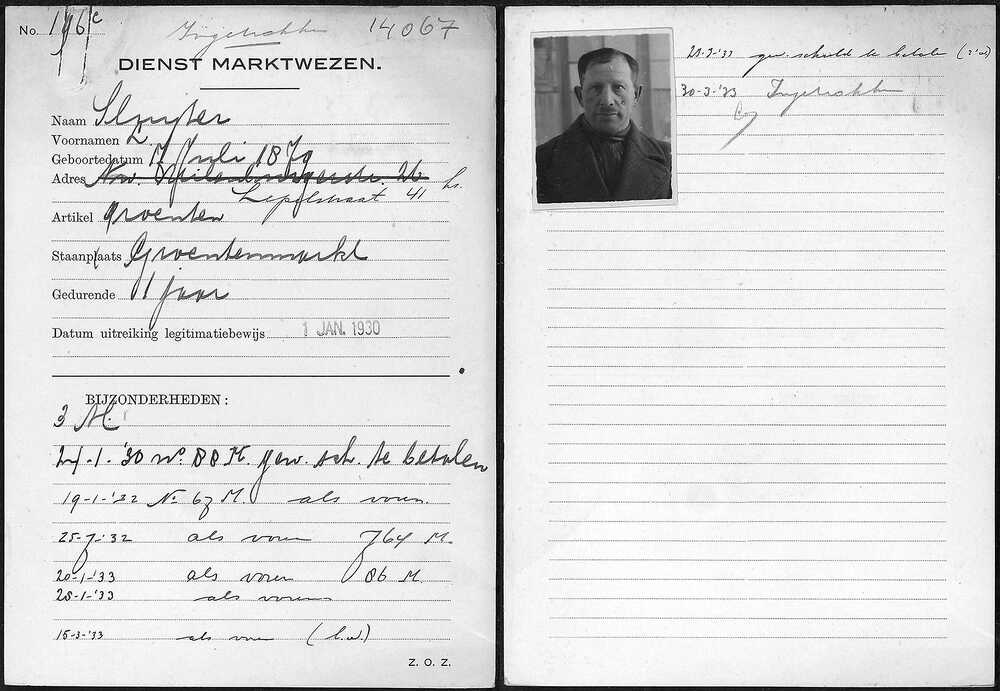 No. 196c Ingetrokken 14067
DIENST MARKTWEZEN.
Naam Sluyter
Voornamen L
Geboortedatum 17 Juli 1879
Adres Nw. Uilenburgerstr. 26 hs.
Lepelstraat 41
Artikel groenten
Staanplaats Groentenmarkt
Gedurende 1 jaar
Datum uitreiking legitimatiebewijs 1 JAN. 1930
BIJZONDERHEDEN:
3 M.
24-1-'30 no. 88 M. gew. sch. te betalen
19-1-'32 No 67 M. als voren.
25-7-'32 als voren 764 M.
20-1-'33 als voren 86 M.
28-1-'33 als voren
15-3-'33 als voren
Z. O. Z.
gew. schuld te betalen
30-3-'33 Ingetrokken